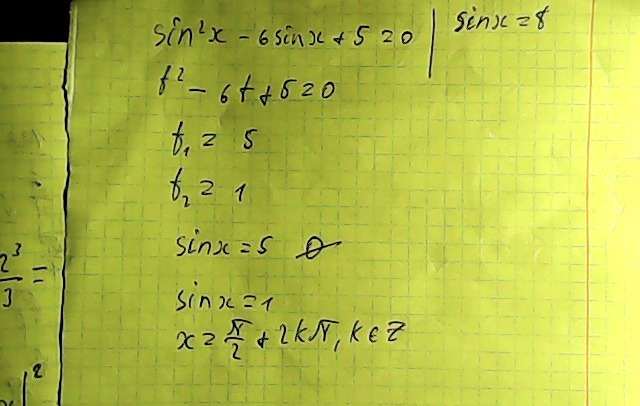 sin²x - 6sinx + 5 = 0 | sinx = t
t² - 6t + 5 = 0
t₁ = 5
t₂ = 1
sinx = 5 ∅
sinx = 1
x = π/2 + 2kπ, k ∈ Z
2³/3 =
|²